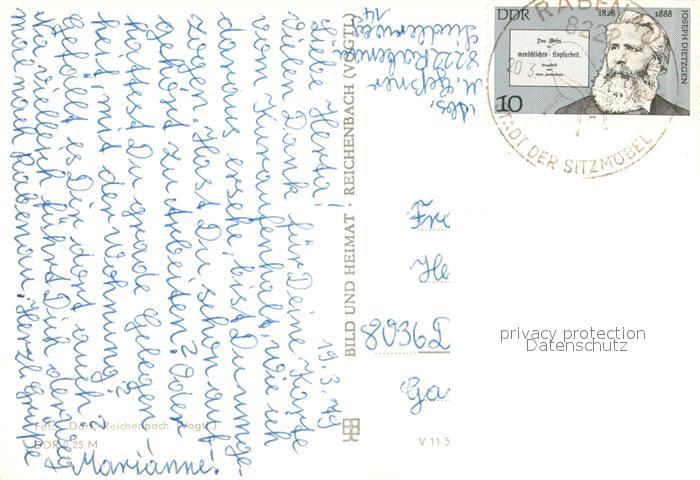 19.3.79
Liebe Herta!
Vielen Dank für Deine Karte
vom Kuraufenthalt. Wie ich
daraus ersehe, bist Du umge-
zogen. Hast Du schon auf-
gehört zu Arbeiten? Oder
hattest Du grade Gelegen-
heit mit der Wohnung?
Gefällt es Dir dort auch?
Na, vielleicht führt Dich der Weg
mal nach Rabenau. Herzl. Grüße
Marianne.
Abs.
M. Geßner
8222 Rabenau
Siedlerweg
14
BILD UND HEIMAT · REICHENBACH (VOGTL.)
Foto: Darr, Reichenbach (Vogtl.)
DDR 0,25 M
V 11 5
DDR
1828 1888
JOSEPH DIETZGEN
Das Wesen
der
menschlichen Kopfarbeit.
10
RABENAU
822
20.3
STADT DER SITZMÖBEL
Fra
He
8036 D
Ga
privacy protection
Datenschutz